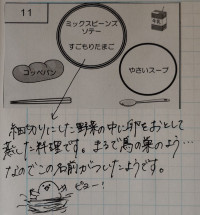 11
ミックスビーンズ
ソテー
すごもりたまご
コッペパン
やさいスープ
細切りにした野菜の中に卵をおとして
蒸した料理です。まるで鳥の巣のよう…
なのでこの名前がついたようです。
ピョー!